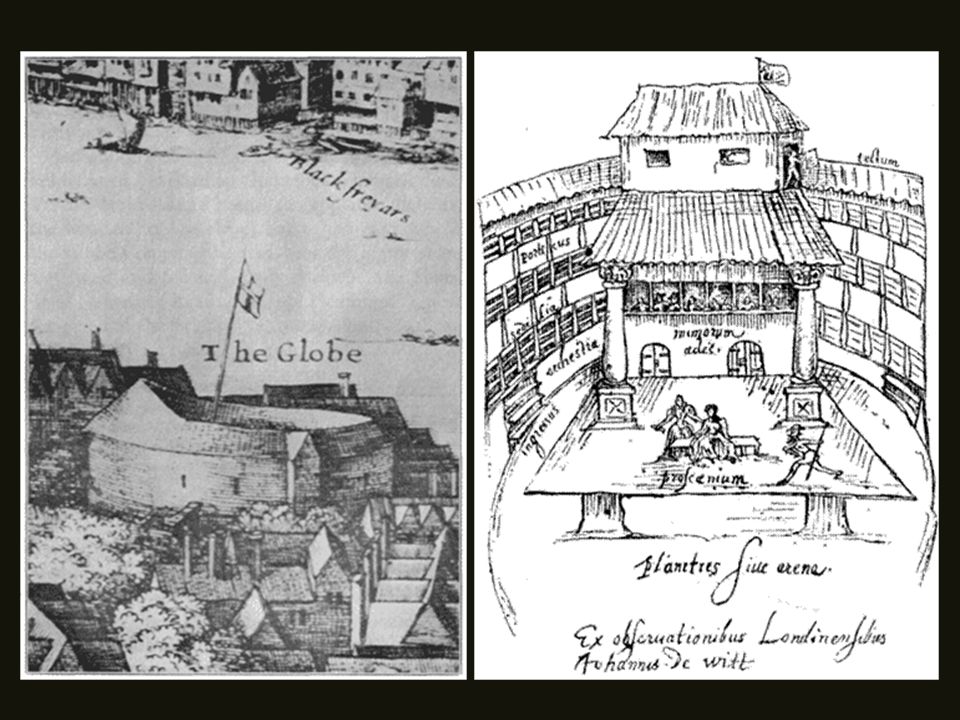 Black freyars
The Globe
tectum
porticus
sedilia
orchestra
ingressus
mimorum
ædes.
proscænium
planities sive arena.
Ex observationibus Londinensibus
Johannis de witt